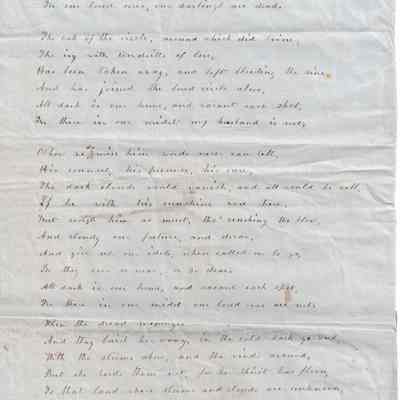 our loved ones, our darlings are dead.
The oak of the circle, around which did twine,
The ivy with tendrills of love,
Has been taken away, and left bleeding the vine,
And has joined the loved circle above,
All dark is our home, and vacant each spot,
For there in our midst my husband is not,
we miss him, words never can tell,
His counsel, his presence, his care,
The dark clouds would vanish, and all would be well,
If he with his sunshine was here,
But weigh him we must, tho'
And cloudy our future, and drear,
And give up our idols, when called on to go,
so near, or so dear.
All dark is our home, and vacant each spot,
For there in our midst our loved ones are not.
When the dread messenger
And they laid him away, in the cold dark ground,
With the storms above, and the wind around,
But she heeds them not, for her spirit has flown,
To that land where storms and clouds are unknown,